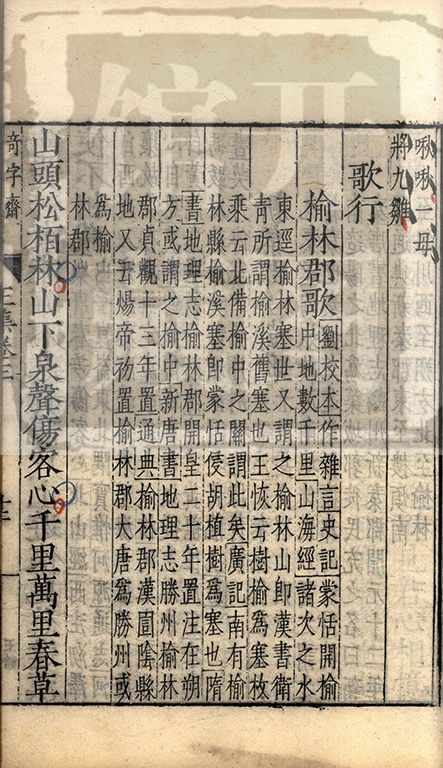 啾啾一母
將九雛
歌行
榆林郡歌
劉校本作雜言史記蒙恬開榆
中地數千里山海經諸次之水
東逕榆林塞世又謂之榆林山即漢書衛
青所謂榆溪舊塞也王恢云樹榆爲塞枚
乘云北備榆中之關謂此矣廣記南有榆
林縣榆溪塞即蒙恬侵胡植樹爲塞也隋
書地理志榆林郡開皇二十年置注在朔
方或謂之榆中新唐書地理志勝州榆林
郡貞觀十三年置通典榆林郡漢圁陰縣
地又云煬帝初置榆林郡大唐爲勝州或
爲榆
林郡
山頭松栢林山下泉聲傷客心千里萬里春草
奇字齋
王集卷三